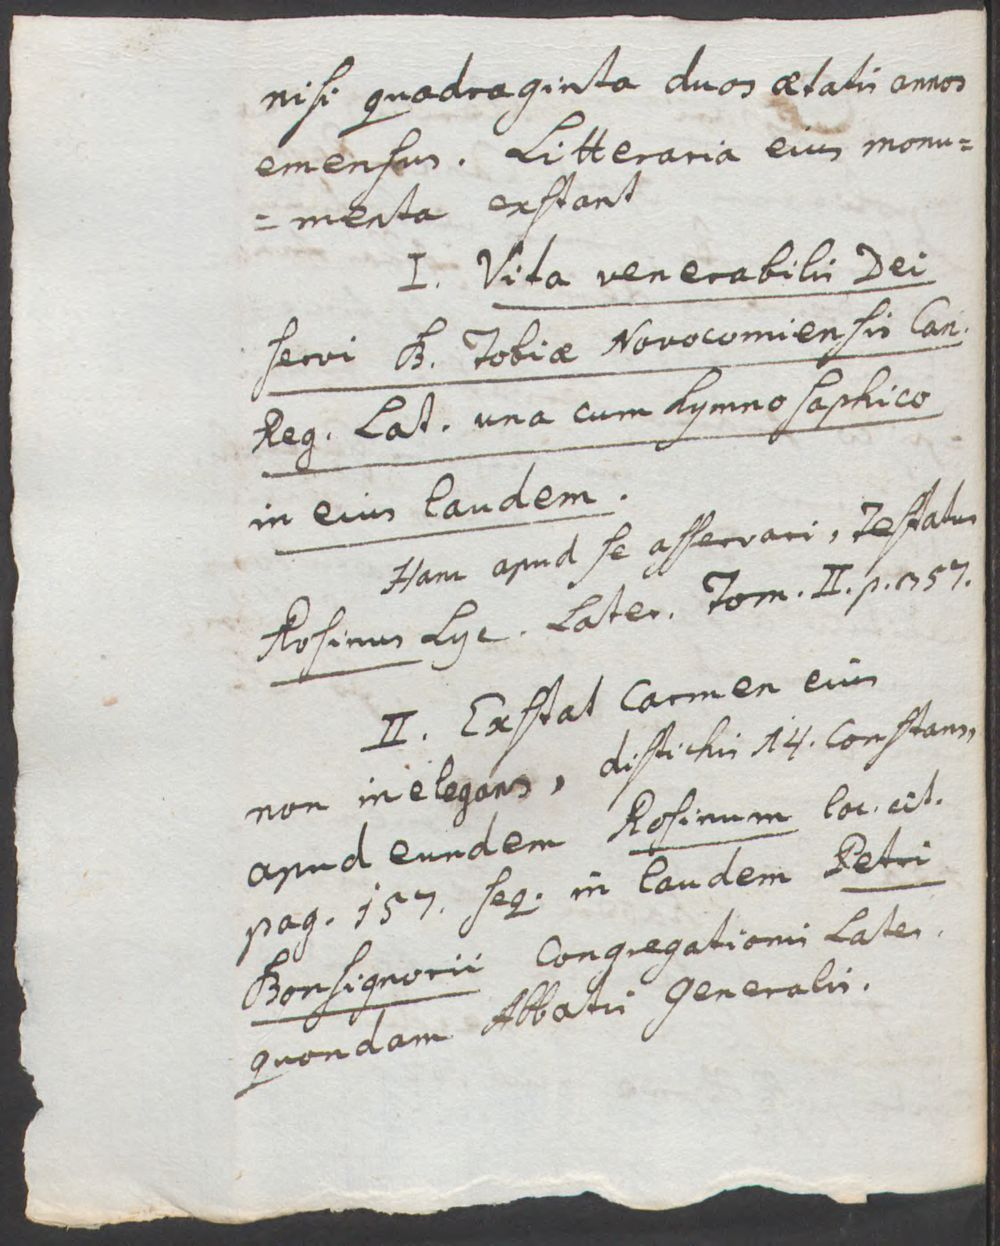 nisi quadraginta duos ætatis annos
emensus. Litteraria eius monu=
=menta exstant
I. Vita venerabilis Dei
servi B. Tobiæ Novocomiensis Can.
Reg. Lat. una cum hymno saphico
in eius laudem.
Hanc apud se asservari, testatur
Rosinus Lyc. Later. Tom. II. p. 157.
II. Exstat Carmen eius
non inelegans, distichis 14. constans,
apud eundem Rosinum loc. cit.
pag. 157. seq. in laudem Petri
Bonsignorii Congregationis Later.
quondam Abbatis Generalis.